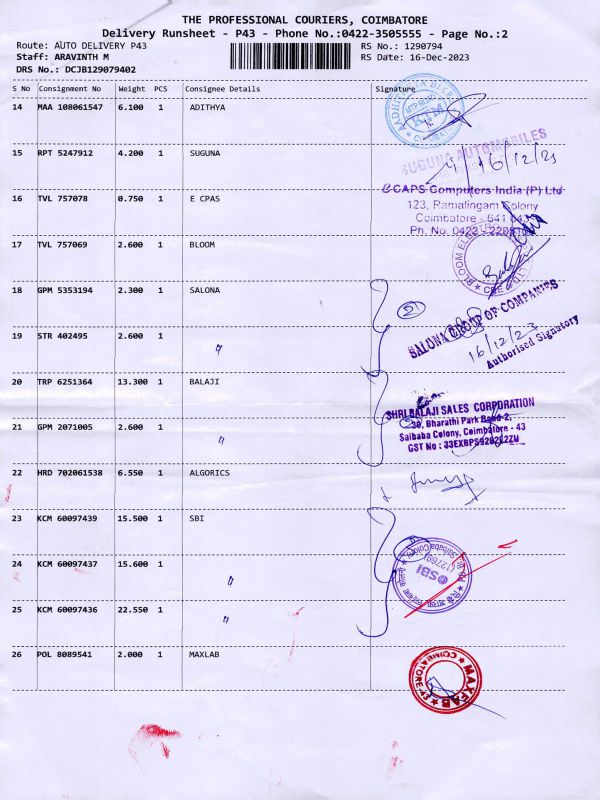 THE PROFESSIONAL COURIERS, COIMBATORE
Delivery Runsheet - P43 - Phone No.:0422-3505555 - Page No.:2
Route: AUTO DELIVERY P43 RS No.: 1290794
Staff: ARAVINTH M RS Date: 16-Dec-2023
DRS No.: DCJB129079402
S No Consignment No Weight PCS Consignee Details Signature
14 MAA 108061547 6.100 1 ADITHYA
MTP ROAD
KTM
15 RPT 5247912 4.200 1 SUGUNA
SUGUNA AUTOMOBILES
16/12/23
16 TVL 757078 0.750 1 E CPAS
CAPS Computers India (P) Ltd
123, Ramalingam Colony
Coimbatore - 641 043
Ph. No. 0422 -
17 TVL 757069 2.600 1 BLOOM
BLOOM
CBE
18 GPM 5353194 2.300 1 SALONA
2
SALONA GROUP OF COMPANIES
16/12/23
Authorised Signatory
19 STR 402495 2.600 1 "
20 TRP 6251364 13.300 1 BALAJI
SHRI BALAJI SALES CORPORATION
30, Bharathi Park Road-2,
Saibaba Colony, Coimbatore - 43
GST No :
21 GPM 2071005 2.600 1 "
22 HRD 702061538 6.550 1 ALGORICS
23 KCM 60097439 15.500 1 SBI
SBI
(12769)
Saibaba Colony
24 KCM 60097437 15.600 1 "
25 KCM 60097436 22.550 1 "
26 POL 8089541 2.000 1 MAXLAB
MAXFAB
COIMBATORE